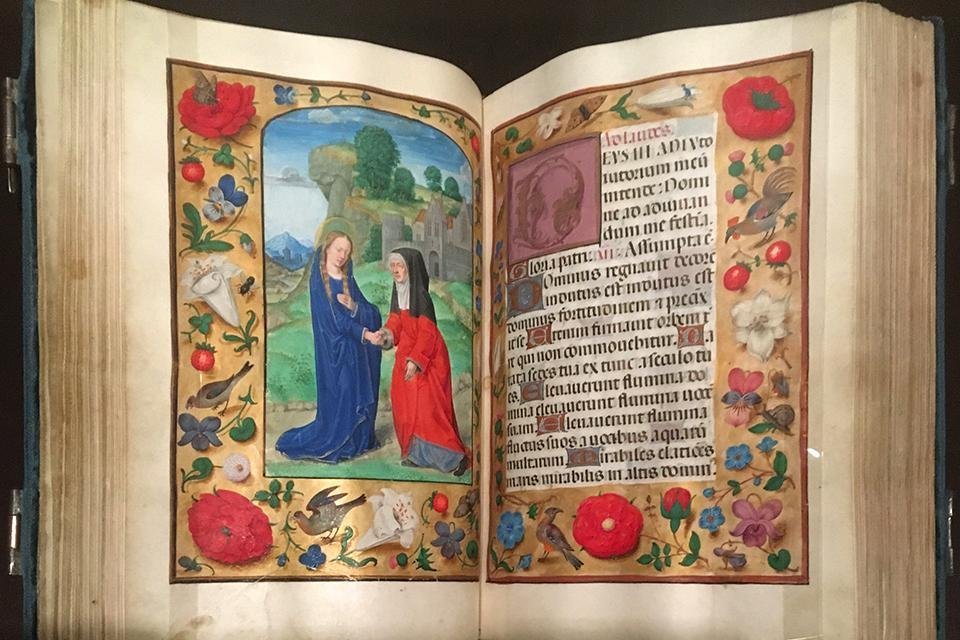 Ad laudes.
DEVS IN ADIVto
iutorium meū
intende: Domi
ne ad adiuuan
dum me festīa.
Gloria patri. Assumpta ē.
Dominus regnauit decorē
indutus est indutus est
dominus fortitudinem
it se Etenim firmauit orbem t
re qui non commouebitur. Pa
rata sedes tua ex tunc a seculo tu
es. Eleuauerunt flumina do
mine eleuauerunt flumina uocē
suam. Eleuauerunt flumina
fluctus suos a uocibus aquarū
multarum Mirabiles elatiões
maris mirabilis in altis domin'.